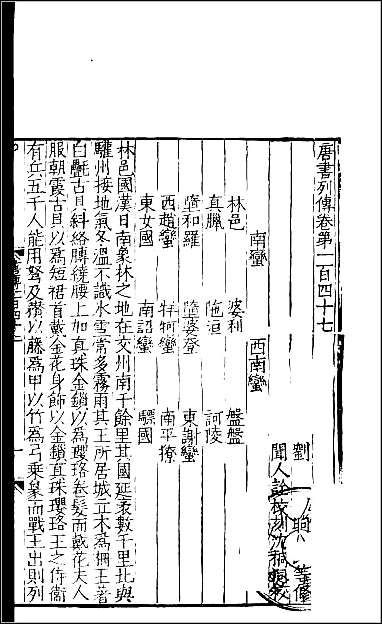 唐書列傳卷第一百四十七
劉 昫
聞人詮校刻沈桐
南蠻 西南蠻
林邑 婆利 盤盤
真臘 陁洹 訶陵
墮和羅 墮婆登 東謝蠻
西趙蠻 牂牁蠻 南平獠
東女國 南詔蠻 驃國
林邑國漢日南象林之地在交州南千餘里其國延袤數千里北與
驩州接地氣冬溫不識冰雪常多霧雨其王所居城立木爲柵王著
白氎古貝斜絡膊繞腰上加真珠金鎖以爲瓔珞卷髮而戴花夫人
服朝霞古貝以爲短裙首戴金花身飾以金鎖真珠瓔珞王之侍衞
有兵五千人能用弩及䂎以藤爲甲以竹爲弓乘象而戰王出則列